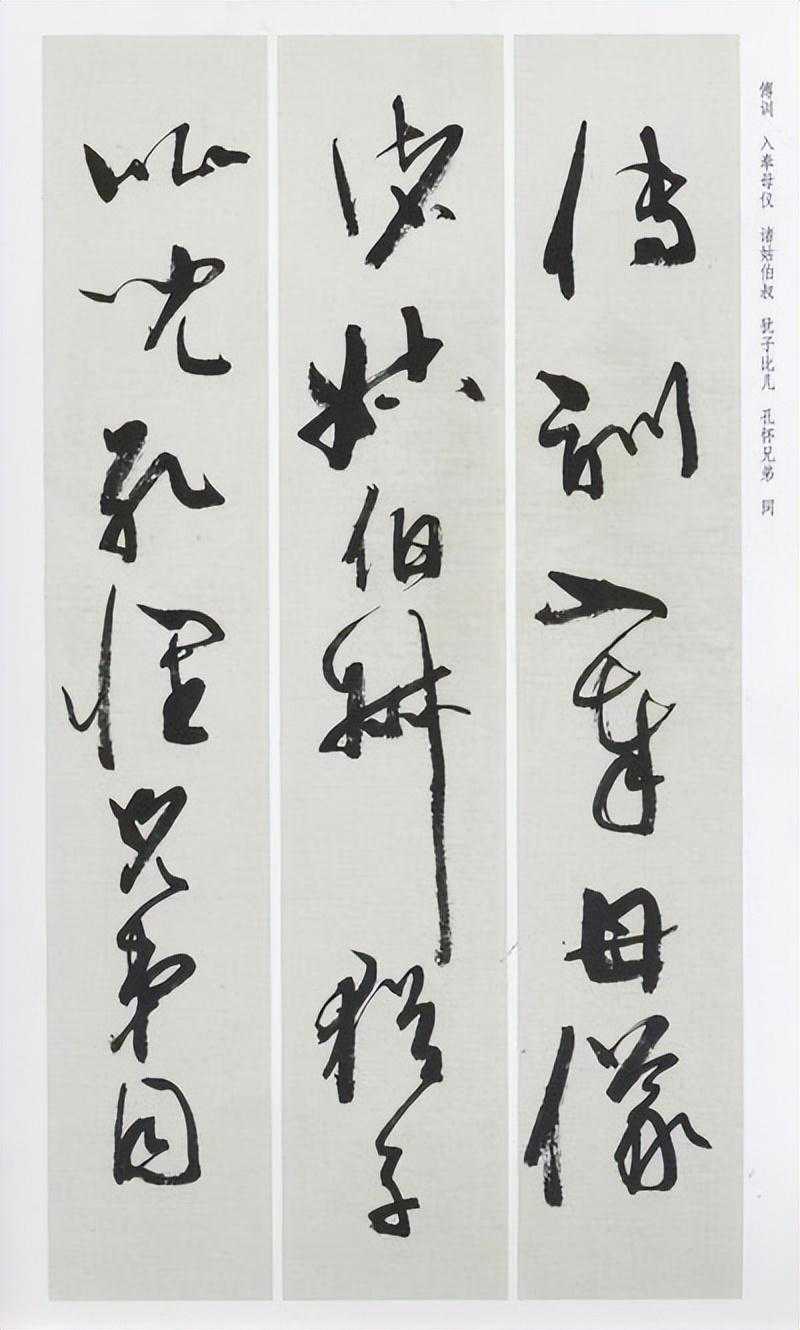 傅训 入奉母仪 诸姑伯叔 犹子比儿 孔怀兄弟 同
傅訓入奉母儀
諸姑伯叔猶子
比兒孔懷兄弟同